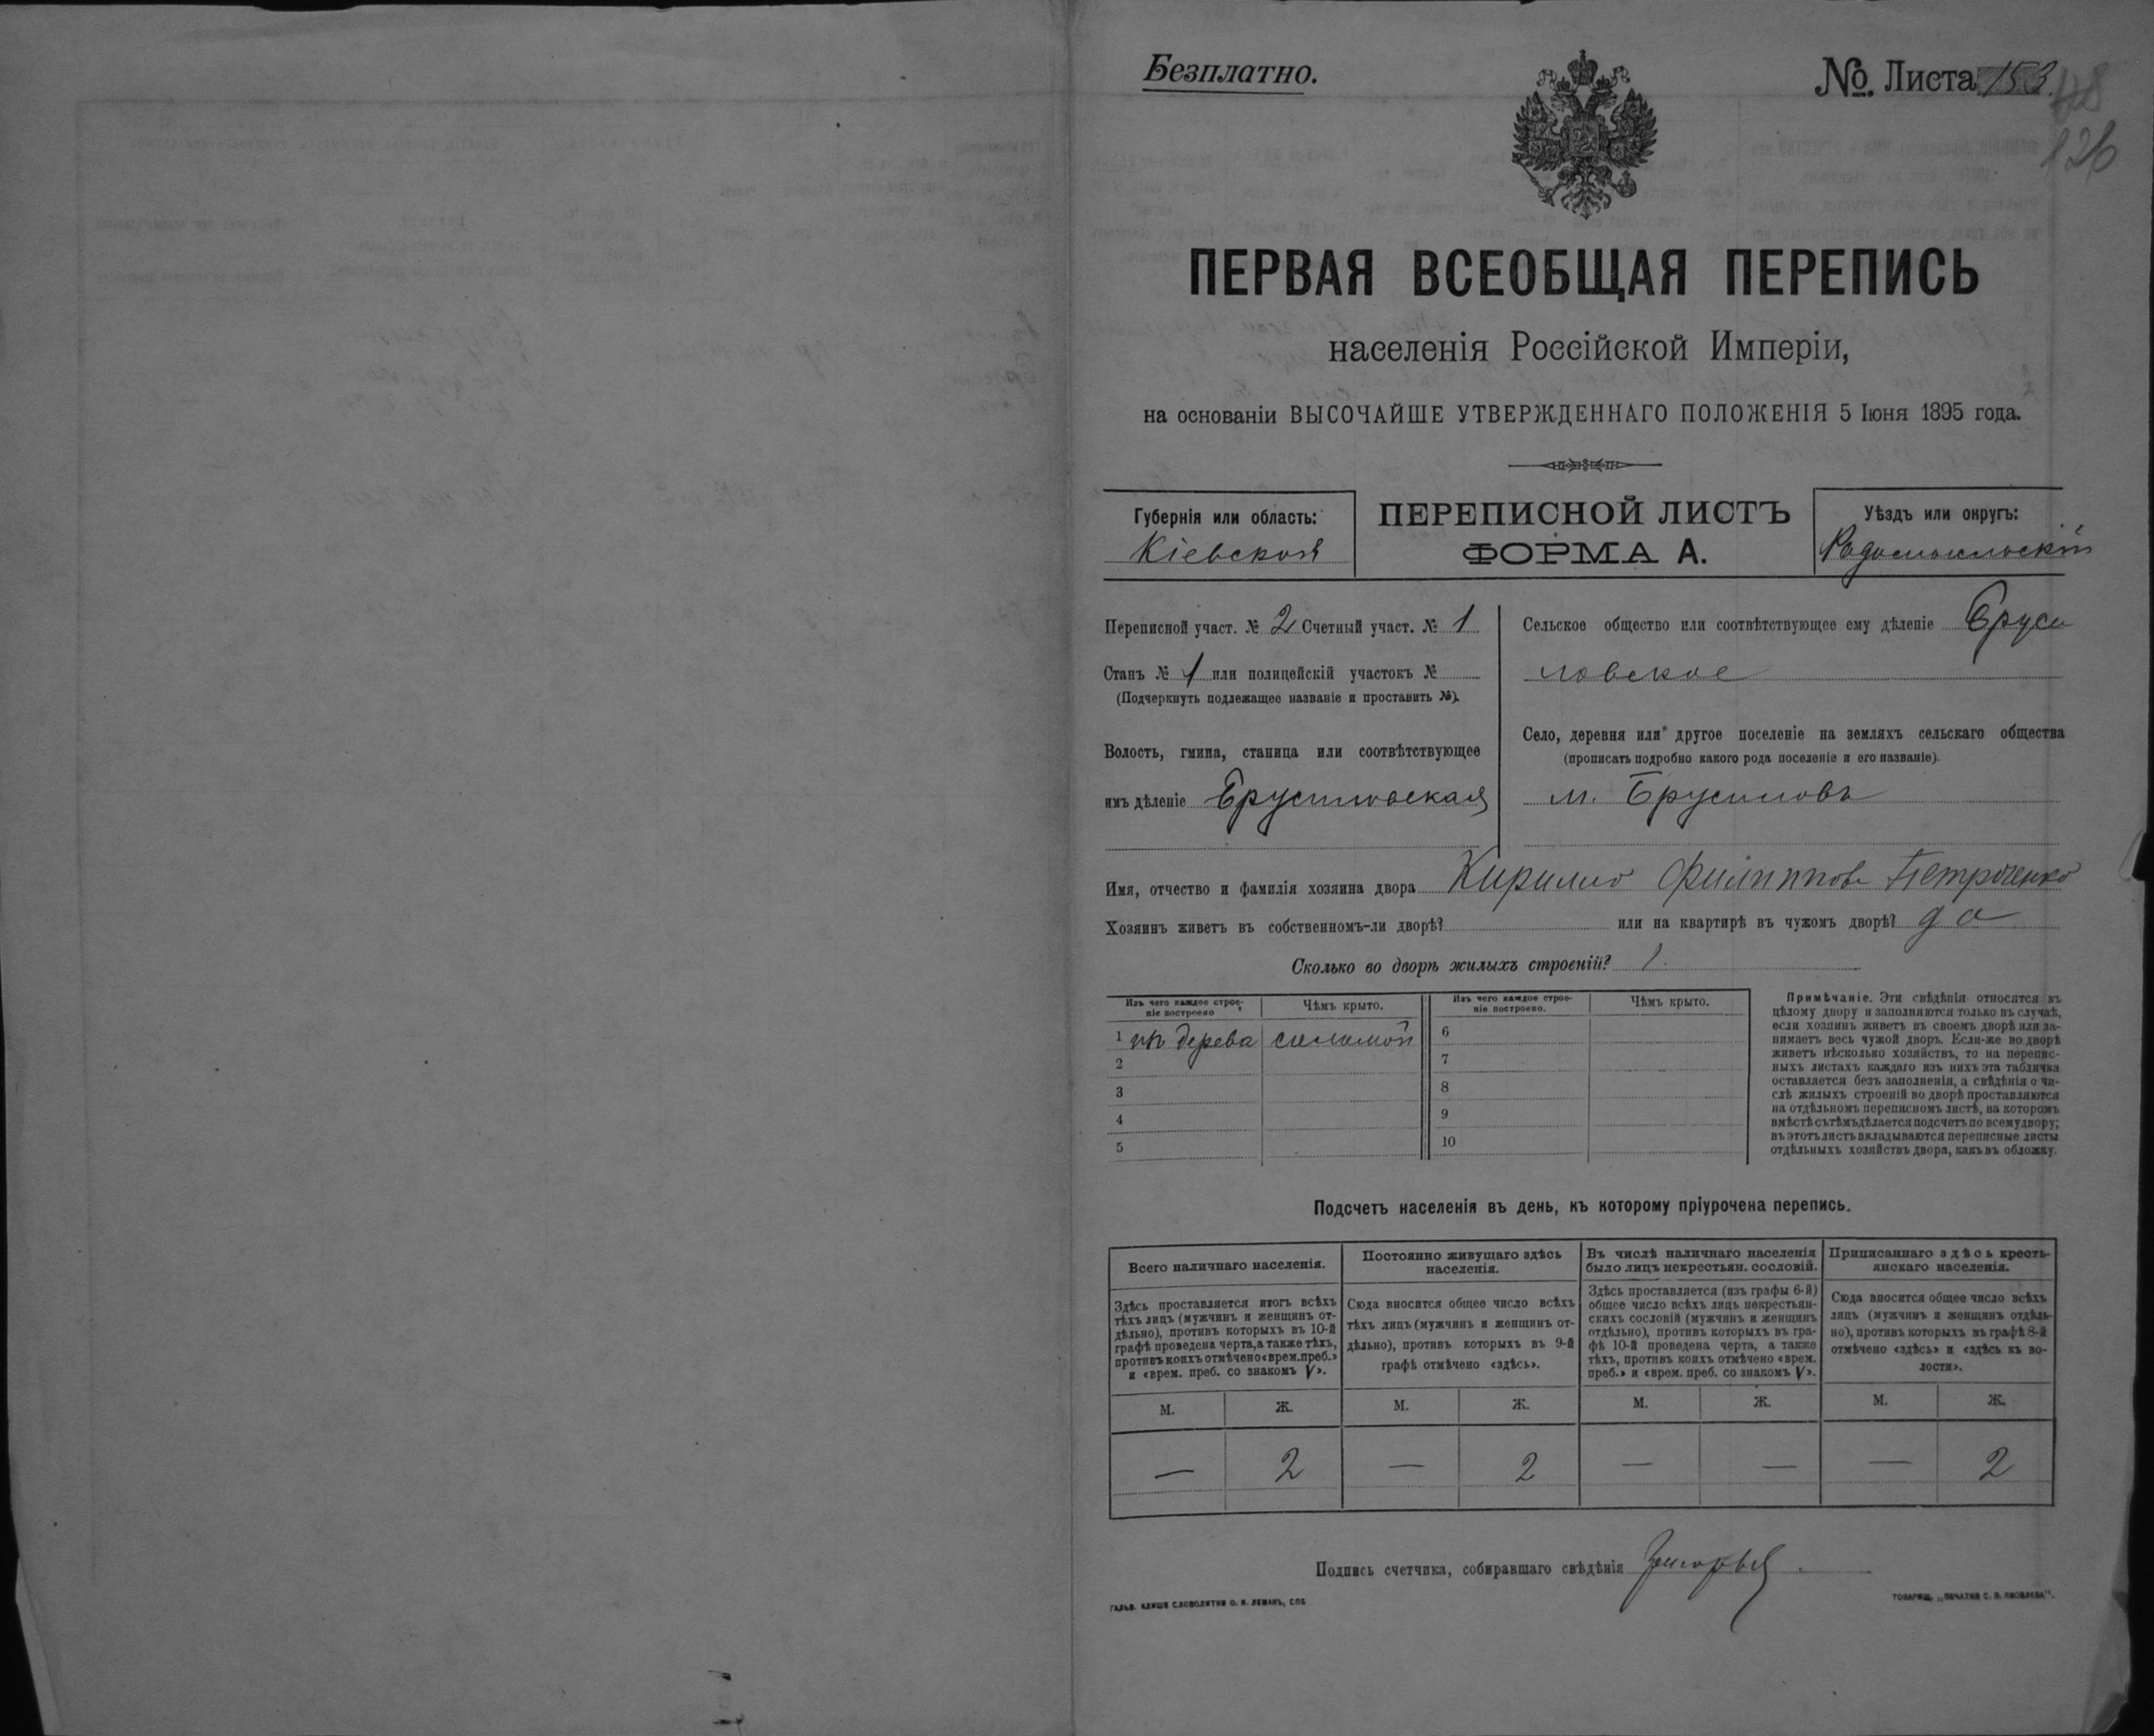 Безплатно.
№. Листа 153.
126
ПЕРВАЯ ВСЕОБЩАЯ ПЕРЕПИСЬ
населенія Россійской Имперіи,
на основаніи ВЫСОЧАЙШЕ УТВЕРЖДЕННАГО ПОЛОЖЕНІЯ 5 Іюня 1895 года.
Губернія или область:
Кіевская
ПЕРЕПИСНОЙ ЛИСТЪ
ФОРМА А.
Уѣздъ или округъ:
Радомысльскій
Переписной участ. № 2 Счетный участ. № 1
Станъ № 1 или полицейскій участокъ №
(Подчеркнуть подлежащее названіе и проставить №).
Волость, гмина, станица или соотвѣтствующее
имъ дѣленіе Брусиловская
Сельское общество или соотвѣтствующее ему дѣленіе Бруси
ловское
Село, деревня или другое поселеніе на земляхъ сельскаго общества
(прописать подробно какого рода поселеніе и его названіе).
м. Брусиловъ
Имя, отчество и фамилія хозяина двора Кирилло Филиппов Петроченко
Хозяинъ живетъ въ собственномъ-ли дворѣ? или на квартирѣ въ чужомъ дворѣ? да
Сколько во дворѣ жилыхъ строеній? 1.
Изъ чего каждое строе-
ніе построено
Чѣмъ крыто.
Изъ чего каждое строе-
ніе построено.
Чѣмъ крыто.
1 изъ дерева соломой
2
3
4
5
6
7
8
9
10
Примѣчаніе. Эти свѣдѣнія относятся къ
цѣлому двору и заполняются только въ случаѣ,
если хозяинъ живетъ въ своемъ дворѣ или за-
нимаетъ весь чужой дворъ. Если-же во дворѣ
живетъ нѣсколько хозяйствъ, то на перепис-
ныхъ листахъ каждаго изъ нихъ эта табличка
оставляется безъ заполненія, а свѣдѣнія о чи-
слѣ жилыхъ строеній во дворѣ проставляются
на отдѣльномъ переписномъ листѣ, на которомъ
вмѣстѣ съ тѣмъ дѣлается подсчетъ по всему двору;
въ этотъ листъ вкладываются переписные листы
отдѣльныхъ хозяйствъ двора, какъ въ обложку.
Подсчетъ населенія въ день, къ которому пріурочена перепись.
Всего наличнаго населенія.
Постоянно живущаго здѣсь
населенія.
Въ числѣ наличнаго населенія
было лицъ некрестьян. сословій.
Приписаннаго здѣсь кресть-
янскаго населенія.
Здѣсь проставляется итогъ всѣхъ
тѣхъ лицъ (мужчинъ и женщинъ от-
дѣльно), противъ которыхъ въ 10-й
графѣ проведена черта, а также тѣхъ,
противъ коихъ отмѣчено «врем. преб.»
и «врем. преб. со знакомъ V».
Сюда вносится общее число всѣхъ
тѣхъ лицъ (мужчинъ и женщинъ от-
дѣльно), противъ которыхъ въ 9-й
графѣ отмѣчено «здѣсь».
Здѣсь проставляется (изъ графы 6-й)
общее число всѣхъ лицъ некрестьян-
скихъ сословій (мужчинъ и женщинъ
отдѣльно), противъ которыхъ въ гра-
фѣ 10-й проведена черта, а также
тѣхъ, противъ коихъ отмѣчено «врем.
преб.» и «врем. преб. со знакомъ V».
Сюда вносится общее число всѣхъ
лицъ (мужчинъ и женщинъ отдѣль-
но), противъ которыхъ въ графѣ 8-й
отмѣчено «здѣсь» и «здѣсь къ во-
лости».
М. Ж. М. Ж. М. Ж. М. Ж.
— 2 — 2 — — — 2
Подпись счетчика, собиравшаго свѣдѣнія
ГАЛЬВ. КЛИШЕ СЛОВОЛИТНИ О. И. ЛЕМАНЪ, СПБ
ТОВАРИЩ. „ПЕЧАТНЯ С. П. ЯКОВЛЕВА“.